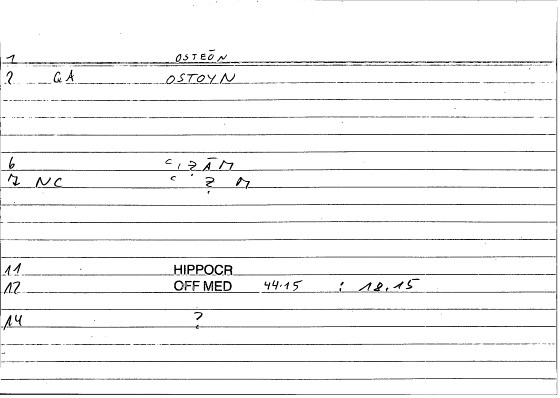 1 OSTEŌN
2 GA OSTOYN
6 C , ? Ā M
7 NC C ? M
11 HIPPOCR
12 OFF MED 44.15 : 18.15
14 ?